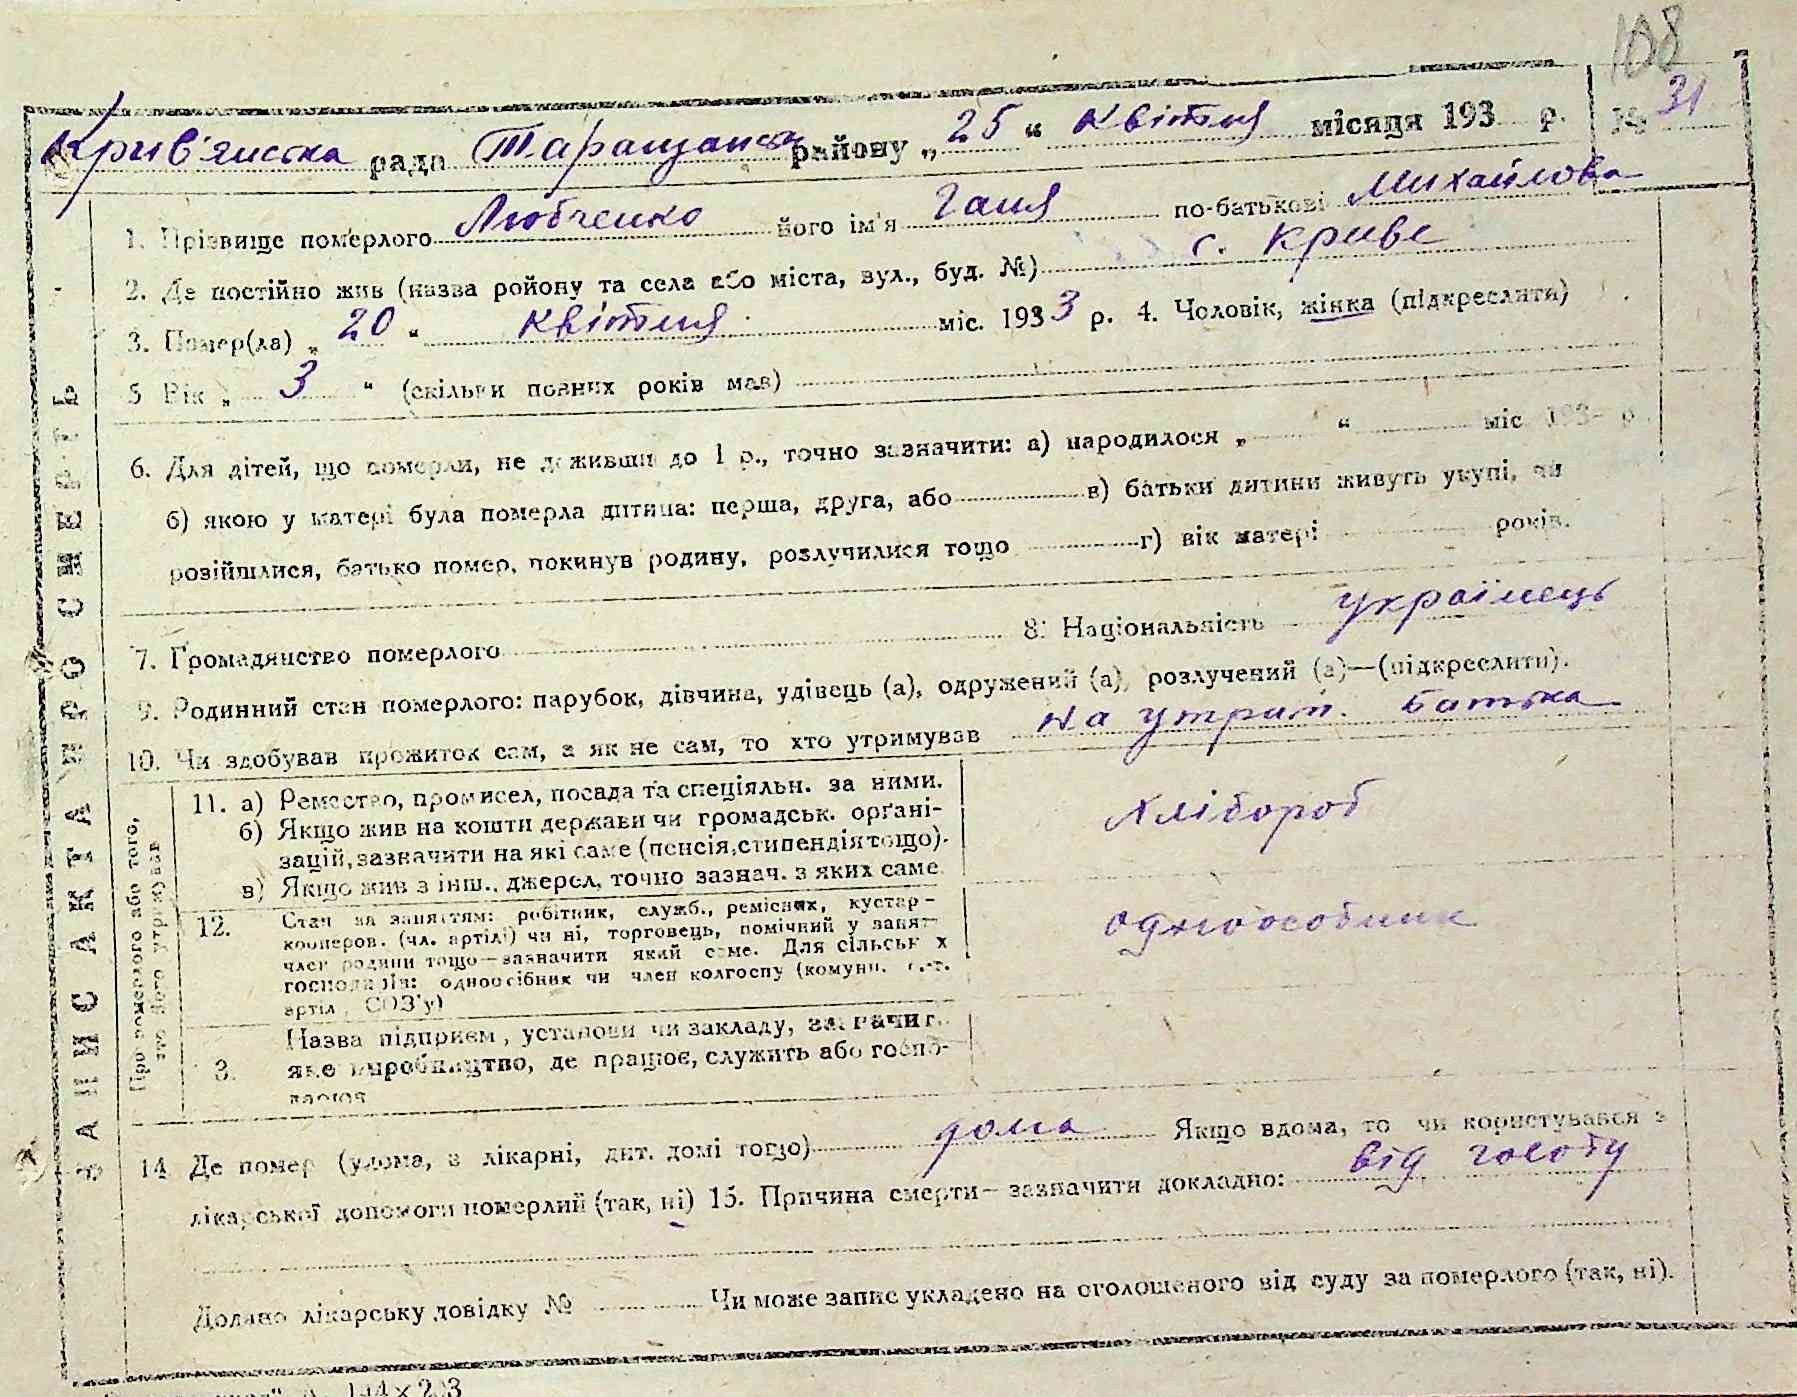 108
Крив'янська рада Таращанск району „25“ квітня місяця 193 р. № 31
ЗАПИС АКТА ПРО СМЕРТЬ
1. Прізвище померлого Любченко його ім'я Ганя по-батькові Михайлова
2. Де постійно жив (назва ройону та села або міста, вул., буд. №) с. Криве
3. Помер(ла) „20“ квітня міс. 1933 р. 4. Чоловік, жінка (підкреслити)
5 Вік „3“ (скільки повних років мав)
6. Для дітей, що померли, не доживши до 1 р., точно зазначити: а) народилося „ “ міс 193- р.
б) якою у матері була померла дитина: перша, друга, або в) батьки дитини живуть укупі, чи
розійшлися, батько помер, покинув родину, розлучилися тощо г) вік матері років.
7. Громадянство померлого 8. Національність українець
9. Родинний стан померлого: парубок, дівчина, удівець (а), одружений (а), розлучений (а)—(підкреслити).
10. Чи здобував прожиток сам, а як не сам, то хто утримував на утрим. батька
Про померлого або того, хто його утримував
11. а) Ремество, промисел, посада та спеціяльн. за ними.
б) Якщо жив на кошти держави чи громадськ. орґані-
зацій, зазначити на які саме (пенсія, стипендія тощо).
в) Якщо жив з інш., джерел, точно зазнач. з яких саме.
хлібороб
12. Стан за заняттям: робітник, служб., ремісник, кустар-
кооперов. (чл. артілі) чи ні, торговець, помічний у занят-
член родини тощо—зазначити який саме. Для сільськ х
господарів: одноосібник чи член колгоспу (комуни. с.-г.
артіл, СОЗ'у)
одноособник
3. Назва підприєм, установи чи закладу, зазначит.
яке виробництво, де працює, служить або госпо-
дарює
14 Де помер (удома, в лікарні, дит. домі тощо) дома Якщо вдома, то чи користувався з
лікарської допомоги померлий (так, ні) 15. Причина смерти—зазначити докладно: від голоду
Додано лікарську довідку № Чи може запис укладено на оголошеного від суду за померлого (так, ні).